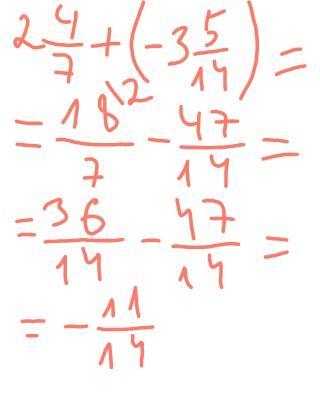 2 4/7 + (-3 5/14) =
= 18\2/7 - 47/14 =
= 36/14 - 47/14 =
= - 11/14